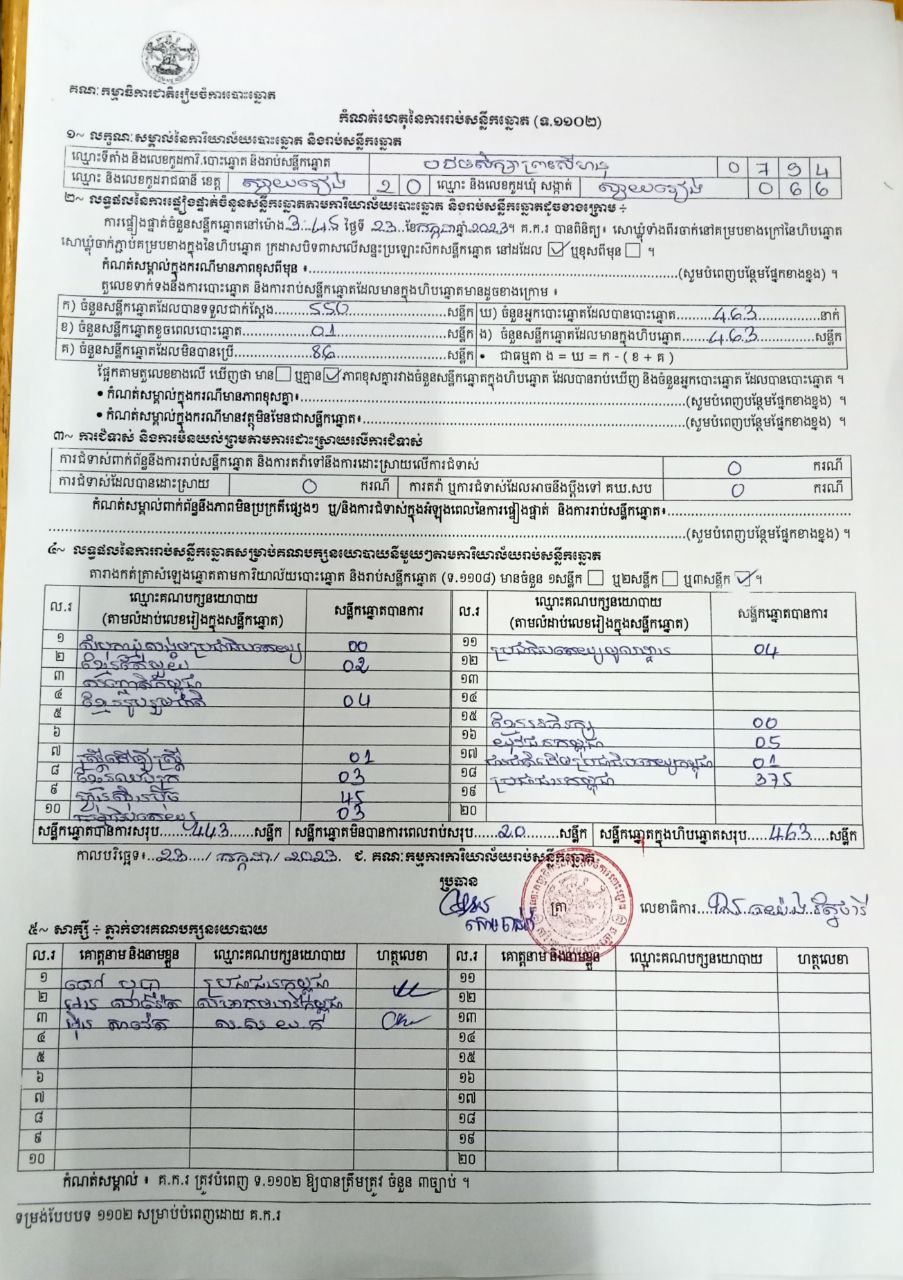 គណៈកម្មាធិការជាតិរៀបចំការបោះឆ្នោត
កំណត់ហេតុនៃការរាប់សន្លឹកឆ្នោត (ទ.១១០២)
១~ លក្ខណៈសម្គាល់នៃការិយាល័យបោះឆ្នោត និងរាប់សន្លឹកឆ្នោត
ឈ្មោះទីតាំង និងលេខកូដការិ.បោះឆ្នោត និងរាប់សន្លឹកឆ្នោត 0 7 9 4
ឈ្មោះ និងលេខកូដរាជធានី ខេត្ត ស្វាយរៀង 2 0 ឈ្មោះ និងលេខកូដឃុំ សង្កាត់ ស្វាយរៀង 0 6 6
២~ លទ្ធផលនៃការផ្ទៀងផ្ទាត់ចំនួនសន្លឹកឆ្នោតតាមការិយាល័យបោះឆ្នោត និងរាប់សន្លឹកឆ្នោតដូចខាងក្រោម ÷
ការផ្ទៀងផ្ទាត់ចំនួនសន្លឹកឆ្នោតនៅម៉ោង 3:45 ថ្ងៃទី 23 ខែកក្កដាឆ្នាំ 2023។ គ.ក.រ បានពិនិត្យ៖ សោឃ្លុំទាំងពីរចាក់នៅគម្របខាងក្រៅនៃហិបឆ្នោត
សោឃ្លុំចាក់ភ្ជាប់គម្របខាងក្នុងនៃហិបឆ្នោត ក្រដាសបិទពាសលើសន្ទះប្រឡោះស៊កសន្លឹកឆ្នោត នៅដដែល ☑ ឬខុសពីមុន ☐ ។
កំណត់សម្គាល់ក្នុងករណីមានភាពខុសពីមុន ៖......(សូមបំពេញបន្ថែមផ្នែកខាងខ្នង) ។
តួលេខទាក់ទងនឹងការបោះឆ្នោត និងការរាប់សន្លឹកឆ្នោតដែលមានក្នុងហិបឆ្នោតមានដូចខាងក្រោម ៖
ក) ចំនួនសន្លឹកឆ្នោតដែលបានទទួលជាក់ស្តែង......550......សន្លឹក ឃ) ចំនួនអ្នកបោះឆ្នោតដែលបានបោះឆ្នោត......463......នាក់
ខ) ចំនួនសន្លឹកឆ្នោតខូចពេលបោះឆ្នោត......01......សន្លឹក ង) ចំនួនសន្លឹកឆ្នោតដែលមានក្នុងហិបឆ្នោត......463......សន្លឹក
គ) ចំនួនសន្លឹកឆ្នោតដែលមិនបានប្រើ......86......សន្លឹក • ជាធម្មតា ង = ឃ = ក - ( ខ + គ )
ផ្អែកតាមតួលេខខាងលើ ឃើញថា មាន ☐ ឬគ្មាន ☑ ភាពខុសគ្នារវាងចំនួនសន្លឹកឆ្នោតក្នុងហិបឆ្នោត ដែលបានរាប់ឃើញ និងចំនួនអ្នកបោះឆ្នោត ដែលបានបោះឆ្នោត ។
• កំណត់សម្គាល់ក្នុងករណីមានភាពខុសគ្នា៖......(សូមបំពេញបន្ថែមផ្នែកខាងខ្នង) ។
• កំណត់សម្គាល់ក្នុងករណីមានវត្ថុមិនមែនជាសន្លឹកឆ្នោត៖......(សូមបំពេញបន្ថែមផ្នែកខាងខ្នង) ។
៣~ ការជំទាស់ និងការមិនយល់ព្រមតាមការដោះស្រាយលើការជំទាស់
ការជំទាស់ពាក់ព័ន្ធនឹងការរាប់សន្លឹកឆ្នោត និងការតវ៉ាទៅនឹងការដោះស្រាយលើការជំទាស់ 0 ករណី
ការជំទាស់ដែលបានដោះស្រាយ 0 ករណី ការតវ៉ា ឬការជំទាស់ដែលអាចនឹងប្តឹងទៅ គឃ.សប 0 ករណី
កំណត់សម្គាល់ពាក់ព័ន្ធនឹងភាពមិនប្រក្រតីផ្សេងៗ ឬ/និងការជំទាស់ក្នុងអំឡុងពេលនៃការផ្ទៀងផ្ទាត់ និងការរាប់សន្លឹកឆ្នោត៖......
......(សូមបំពេញបន្ថែមផ្នែកខាងខ្នង) ។
៤~ លទ្ធផលនៃការរាប់សន្លឹកឆ្នោតសម្រាប់គណបក្សនយោបាយនីមួយៗតាមការិយាល័យរាប់សន្លឹកឆ្នោត
តារាងកត់ត្រាសំឡេងឆ្នោតតាមការិយាល័យបោះឆ្នោត និងរាប់សន្លឹកឆ្នោត (ទ.១១០៨) មានចំនួន ១សន្លឹក ☐ ឬ២សន្លឹក ☐ ឬ៣សន្លឹក ☑ ។
ល.រ ឈ្មោះគណបក្សនយោបាយ (តាមលំដាប់លេខរៀងក្នុងសន្លឹកឆ្នោត) សន្លឹកឆ្នោតបានការ ល.រ ឈ្មោះគណបក្សនយោបាយ (តាមលំដាប់លេខរៀងក្នុងសន្លឹកឆ្នោត) សន្លឹកឆ្នោតបានការ
១ 00 ១១ 04
២ ខ្មែរតែមួយ 02 ១២
៣ ១៣
៤ ខ្មែររួបរួមជាតិ 04 ១៤
៥ ១៥ ខ្មែរអភិរក្ស 00
៦ ១៦ យុវជនកម្ពុជា 05
៧ ស្ត្រីដើម្បីស្ត្រី 01 ១៧ 01
៨ ខ្មែរឈប់ក្រ 03 ១៨ ប្រជាជនកម្ពុជា 375
៩ ហ៊្វុនស៊ិនប៉ិច 45 ១៩
១០ 03 ២០
សន្លឹកឆ្នោតបានការសរុប......443......សន្លឹក សន្លឹកឆ្នោតមិនបានការពេលរាប់សរុប......20......សន្លឹក សន្លឹកឆ្នោតក្នុងហិបឆ្នោតសរុប......463....សន្លឹក
កាលបរិច្ឆេទ៖..23..../ កក្កដា / 2023 ជ. គណៈកម្មការការិយាល័យរាប់សន្លឹកឆ្នោត
ប្រធាន ត្រា លេខាធិការ
៥~ សាក្សី ÷ ភ្នាក់ងារគណបក្សនយោបាយ
ល.រ គោត្តនាម និងនាមខ្លួន ឈ្មោះគណបក្សនយោបាយ ហត្ថលេខា ល.រ គោត្តនាម និងនាមខ្លួន ឈ្មោះគណបក្សនយោបាយ ហត្ថលេខា
១ ប្រជាជនកម្ពុជា ១១
២ ១២
៣ ១៣
៤ ១៤
៥ ១៥
៦ ១៦
៧ ១៧
៨ ១៨
៩ ១៩
១០ ២០
កំណត់សម្គាល់ ៖ គ.ក.រ ត្រូវបំពេញ ទ.១១០២ ឱ្យបានត្រឹមត្រូវ ចំនួន ៣ច្បាប់ ។
ទម្រង់បែបបទ ១១០២ សម្រាប់បំពេញដោយ គ.ក.រ